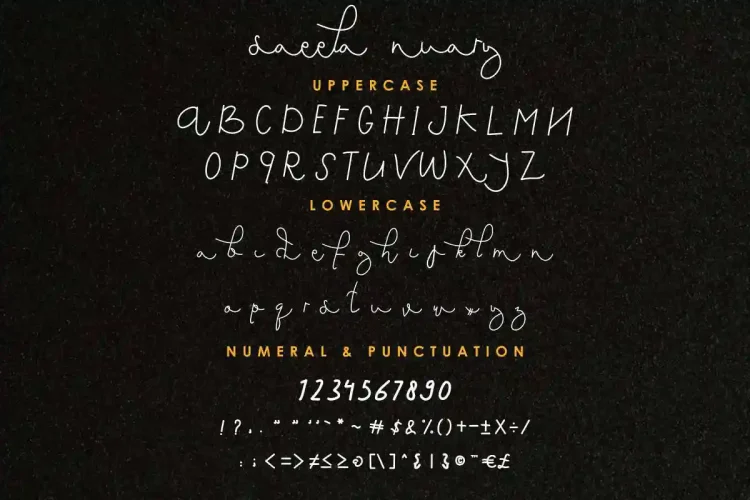 saeela nuary
UPPERCASE
ABCDEFGHIJKLMN
OPQRSTUVWXYZ
LOWERCASE
abcdefghijklmn
opqrstuvwxyz
NUMERAL & PUNCTUATION
1234567890
!?..""''"*~#$&%()+-±X÷/
:;<=>≠≤≥[\]^{|}©¨€£